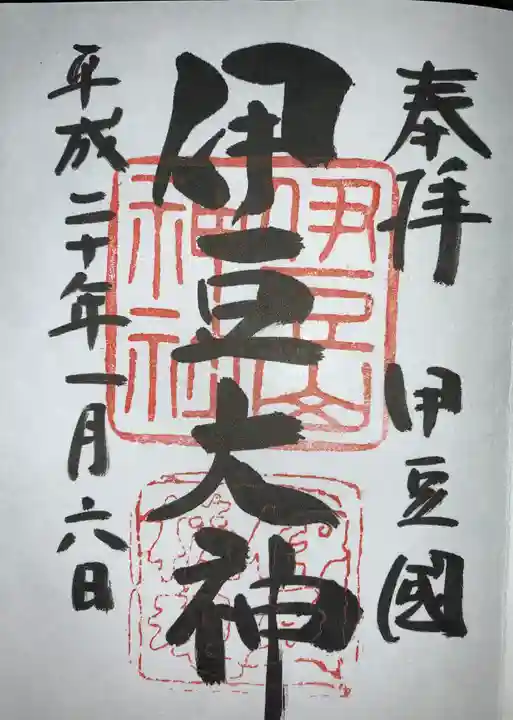 奉拝 伊豆國
伊豆大神
伊豆山神社
平成二十年一月六日